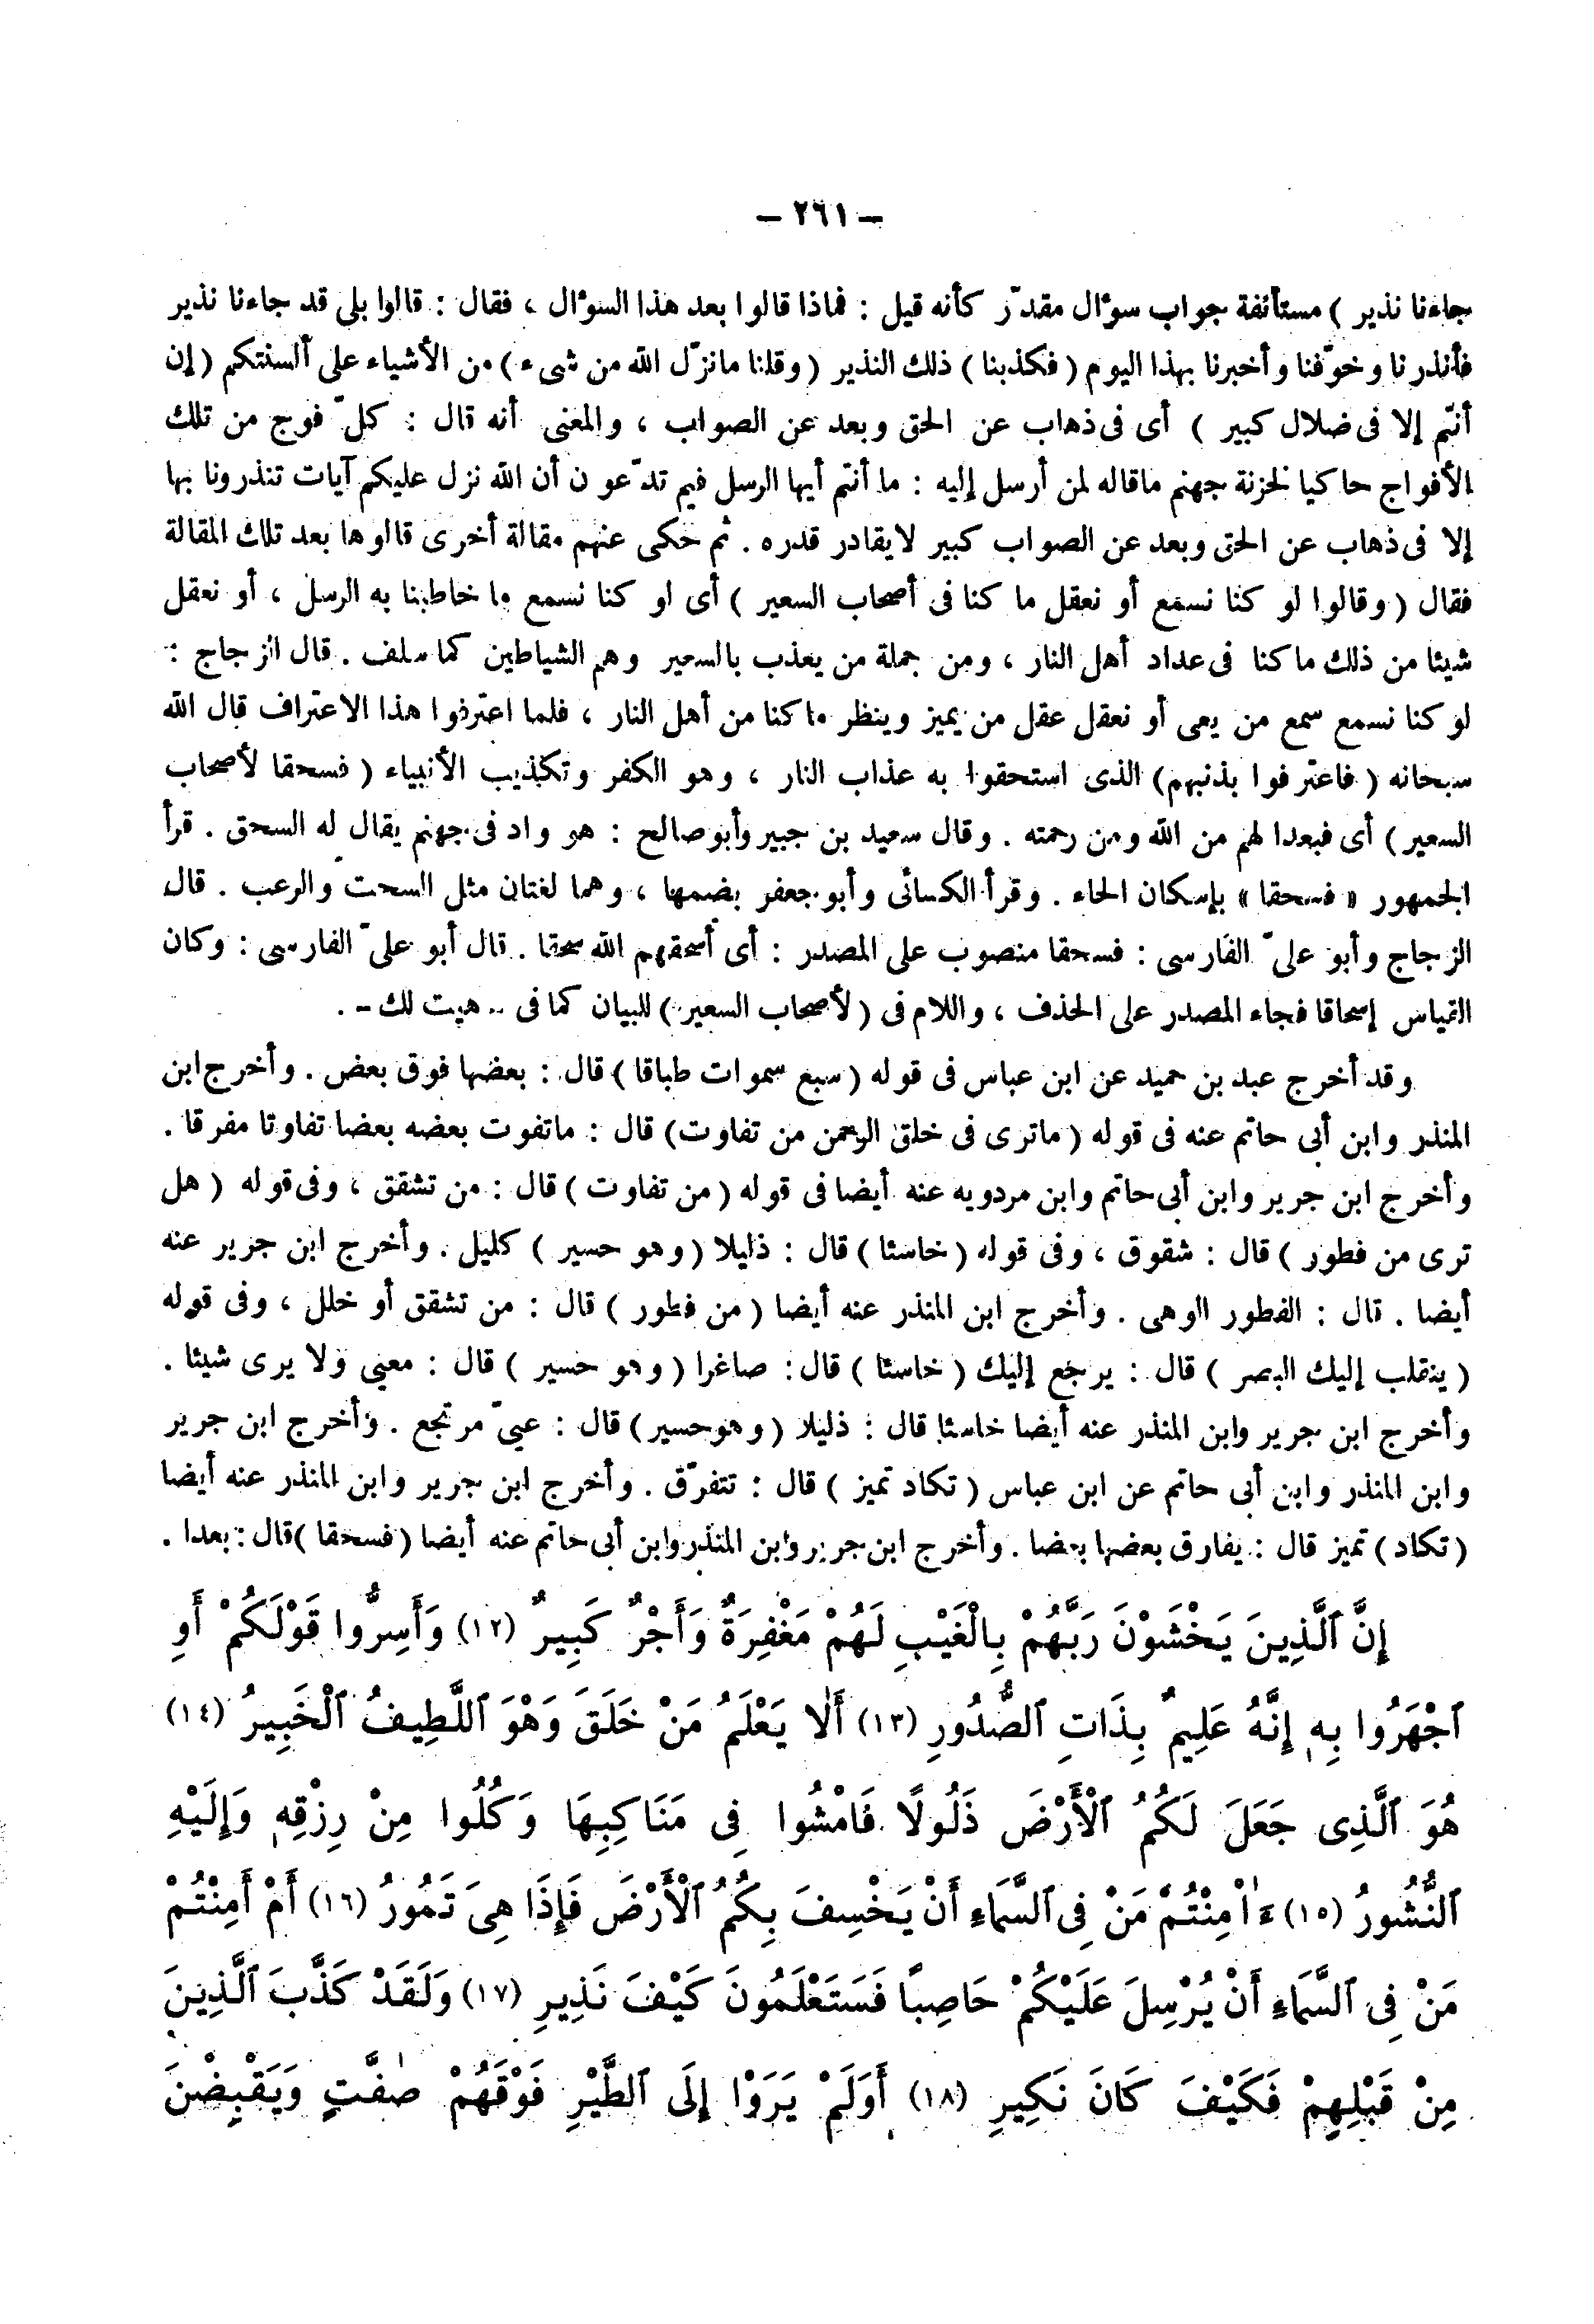 – ٢٦١ –
جاءنا نذير ) مستأنفة جواب سؤال مقدّر كأنه قيل : فماذا قالوا بعد هذا السؤال ، فقال : قالوا بلى قد جاءنا نذير
فأنذرنا وخوّفنا وأخبرنا بهذا اليوم ( فكذبنا ) ذلك النذير ( وقلنا مانزّل الله من شىء ) من الأشياء على ألسنتكم ( إن
أنتم إلا فى ضلال كبير ) أى فى ذهاب عن الحق وبعد عن الصواب ، والمعنى أنه قال : كلّ فوج من تلك
الأفواج حاكيا لخزنة جهنم ماقاله لمن أرسل إليه : ما أنتم أيها الرسل فيم تدّعون أن الله نزل عليكم آيات تنذرونا بها
إلا فى ذهاب عن الحق وبعد عن الصواب كبير لايقادر قدره . ثم حكى عنهم مقالة أخرى قالوها بعد تلك المقالة
فقال ( وقالوا لو كنا نسمع أو نعقل ما كنا فى أصحاب السعير ) أى لو كنا نسمع ما خاطبنا به الرسل ، أو نعقل
شيئا من ذلك ماكنا فى عداد أهل النار ، ومن جملة من يعذب بالسعير وهم الشياطين كما سلف . قال الزجاج :
لو كنا نسمع سمع من يعى أو نعقل عقل من يميز وينظر ماكنا من أهل النار ، فلما اعترفوا هذا الاعتراف قال الله
سبحانه ( فاعترفوا بذنبهم ) الذى استحقوا به عذاب النار ، وهو الكفر وتكذيب الأنبياء ( فسحقا لأصحاب
السعير ) أى فبعدا لهم من الله ومن رحمته . وقال سعيد بن جبير وأبو صالح : هو واد فى جهنم يقال له السحق . قرأ
الجمهور « فسحقا » بإسكان الحاء . وقرأ الكسائى وأبو جعفر بضمها ، وهما لغتان مثل السحت والرعب . قال
الزجاج وأبو علىّ الفارسى : فسحقا منصوب على المصدر : أى أسحقهم الله سحقا . قال أبو علىّ الفارسى : وكان
القياس إسحاقا فجاء المصدر على الحذف ، واللام فى ( لأصحاب السعير ) للبيان كما فى - هيت لك - .
وقد أخرج عبد بن حميد عن ابن عباس فى قوله ( سبع سموات طباقا ) قال : بعضها فوق بعض . وأخرج ابن
المنذر وابن أبى حاتم عنه فى قوله ( ماترى فى خلق الرحمن من تفاوت ) قال : ماتفوت بعضه بعضا تفاوتا مفرقا .
وأخرج ابن جرير وابن أبى حاتم وابن مردويه عنه أيضا فى قوله ( من تفاوت ) قال : من تشقق ، وفى قوله ( هل
ترى من فطور ) قال : شقوق ، وفى قوله ( خاسئا ) قال : ذليلا ( وهو حسير ) كليل . وأخرج ابن جرير عنه
أيضا . قال : الفطور الوهى . وأخرج ابن المنذر عنه أيضا ( من فطور ) قال : من تشقق أو خلل ، وفى قوله
( ينقلب إليك البصر ) قال : يرجع إليك ( خاسئا ) قال : صاغرا ( وهو حسير ) قال : معيى ولا يرى شيئا .
وأخرج ابن جرير وابن المنذر عنه أيضا خاسئا قال : ذليلا ( وهوحسير ) قال : عيىّ مرتجع . وأخرج ابن جرير
وابن المنذر وابن أبى حاتم عن ابن عباس ( تكاد تميز ) قال : تتفرّق . وأخرج ابن جرير وابن المنذر عنه أيضا
( تكاد ) تميز قال : يفارق بعضها بعضا . وأخرج ابن جرير وابن المنذر وابن أبى حاتم عنه أيضا ( فسحقا ) قال : بعدا .
إِنَّ ٱلَّذِينَ يَخْشَوْنَ رَبَّهُمْ بِالْغَيْبِ لَهُمْ مَغْفِرَةٌ وَأَجْرٌ كَبِيرٌ (١٢) وَأَسِرُّوا قَوْلَكُمْ أَوِ
ٱجْهَرُوا بِهِ إِنَّهُ عَلِيمٌ بِذَاتِ ٱلصُّدُورِ (١٣) أَلَا يَعْلَمُ مَنْ خَلَقَ وَهْوَ ٱللَّطِيفُ ٱلْخَبِيرُ (١٤)
هُوَ ٱلَّذِى جَعَلَ لَكُمُ ٱلْأَرْضَ ذَلُولًا فَامْشُوا فِى مَنَاكِبِهَا وَكُلُوا مِنْ رِزْقِهِ وَإِلَيْهِ
ٱلنُّشُورُ (١٥) ءَاْمِنْتُمْ مَنْ فِى ٱلسَّمَاءِ أَنْ يَخْسِفَ بِكُمُ ٱلْأَرْضَ فَإِذَا هِىَ تَمُورُ (١٦) أَمْ أَمِنْتُمْ
مَنْ فِى ٱلسَّمَاءِ أَنْ يُرْسِلَ عَلَيْكُمْ حَاصِبًا فَسَتَعْلَمُونَ كَيْفَ نَذِيرِ (١٧) وَلَقَدْ كَذَّبَ ٱلَّذِينَ
مِنْ قَبْلِهِمْ فَكَيْفَ كَانَ نَكِيرِ (١٨) أَوَلَمْ يَرَوْا إِلَى ٱلطَّيْرِ فَوْقَهُمْ صٰفَّتٍ وَيَقْبِضْنَ